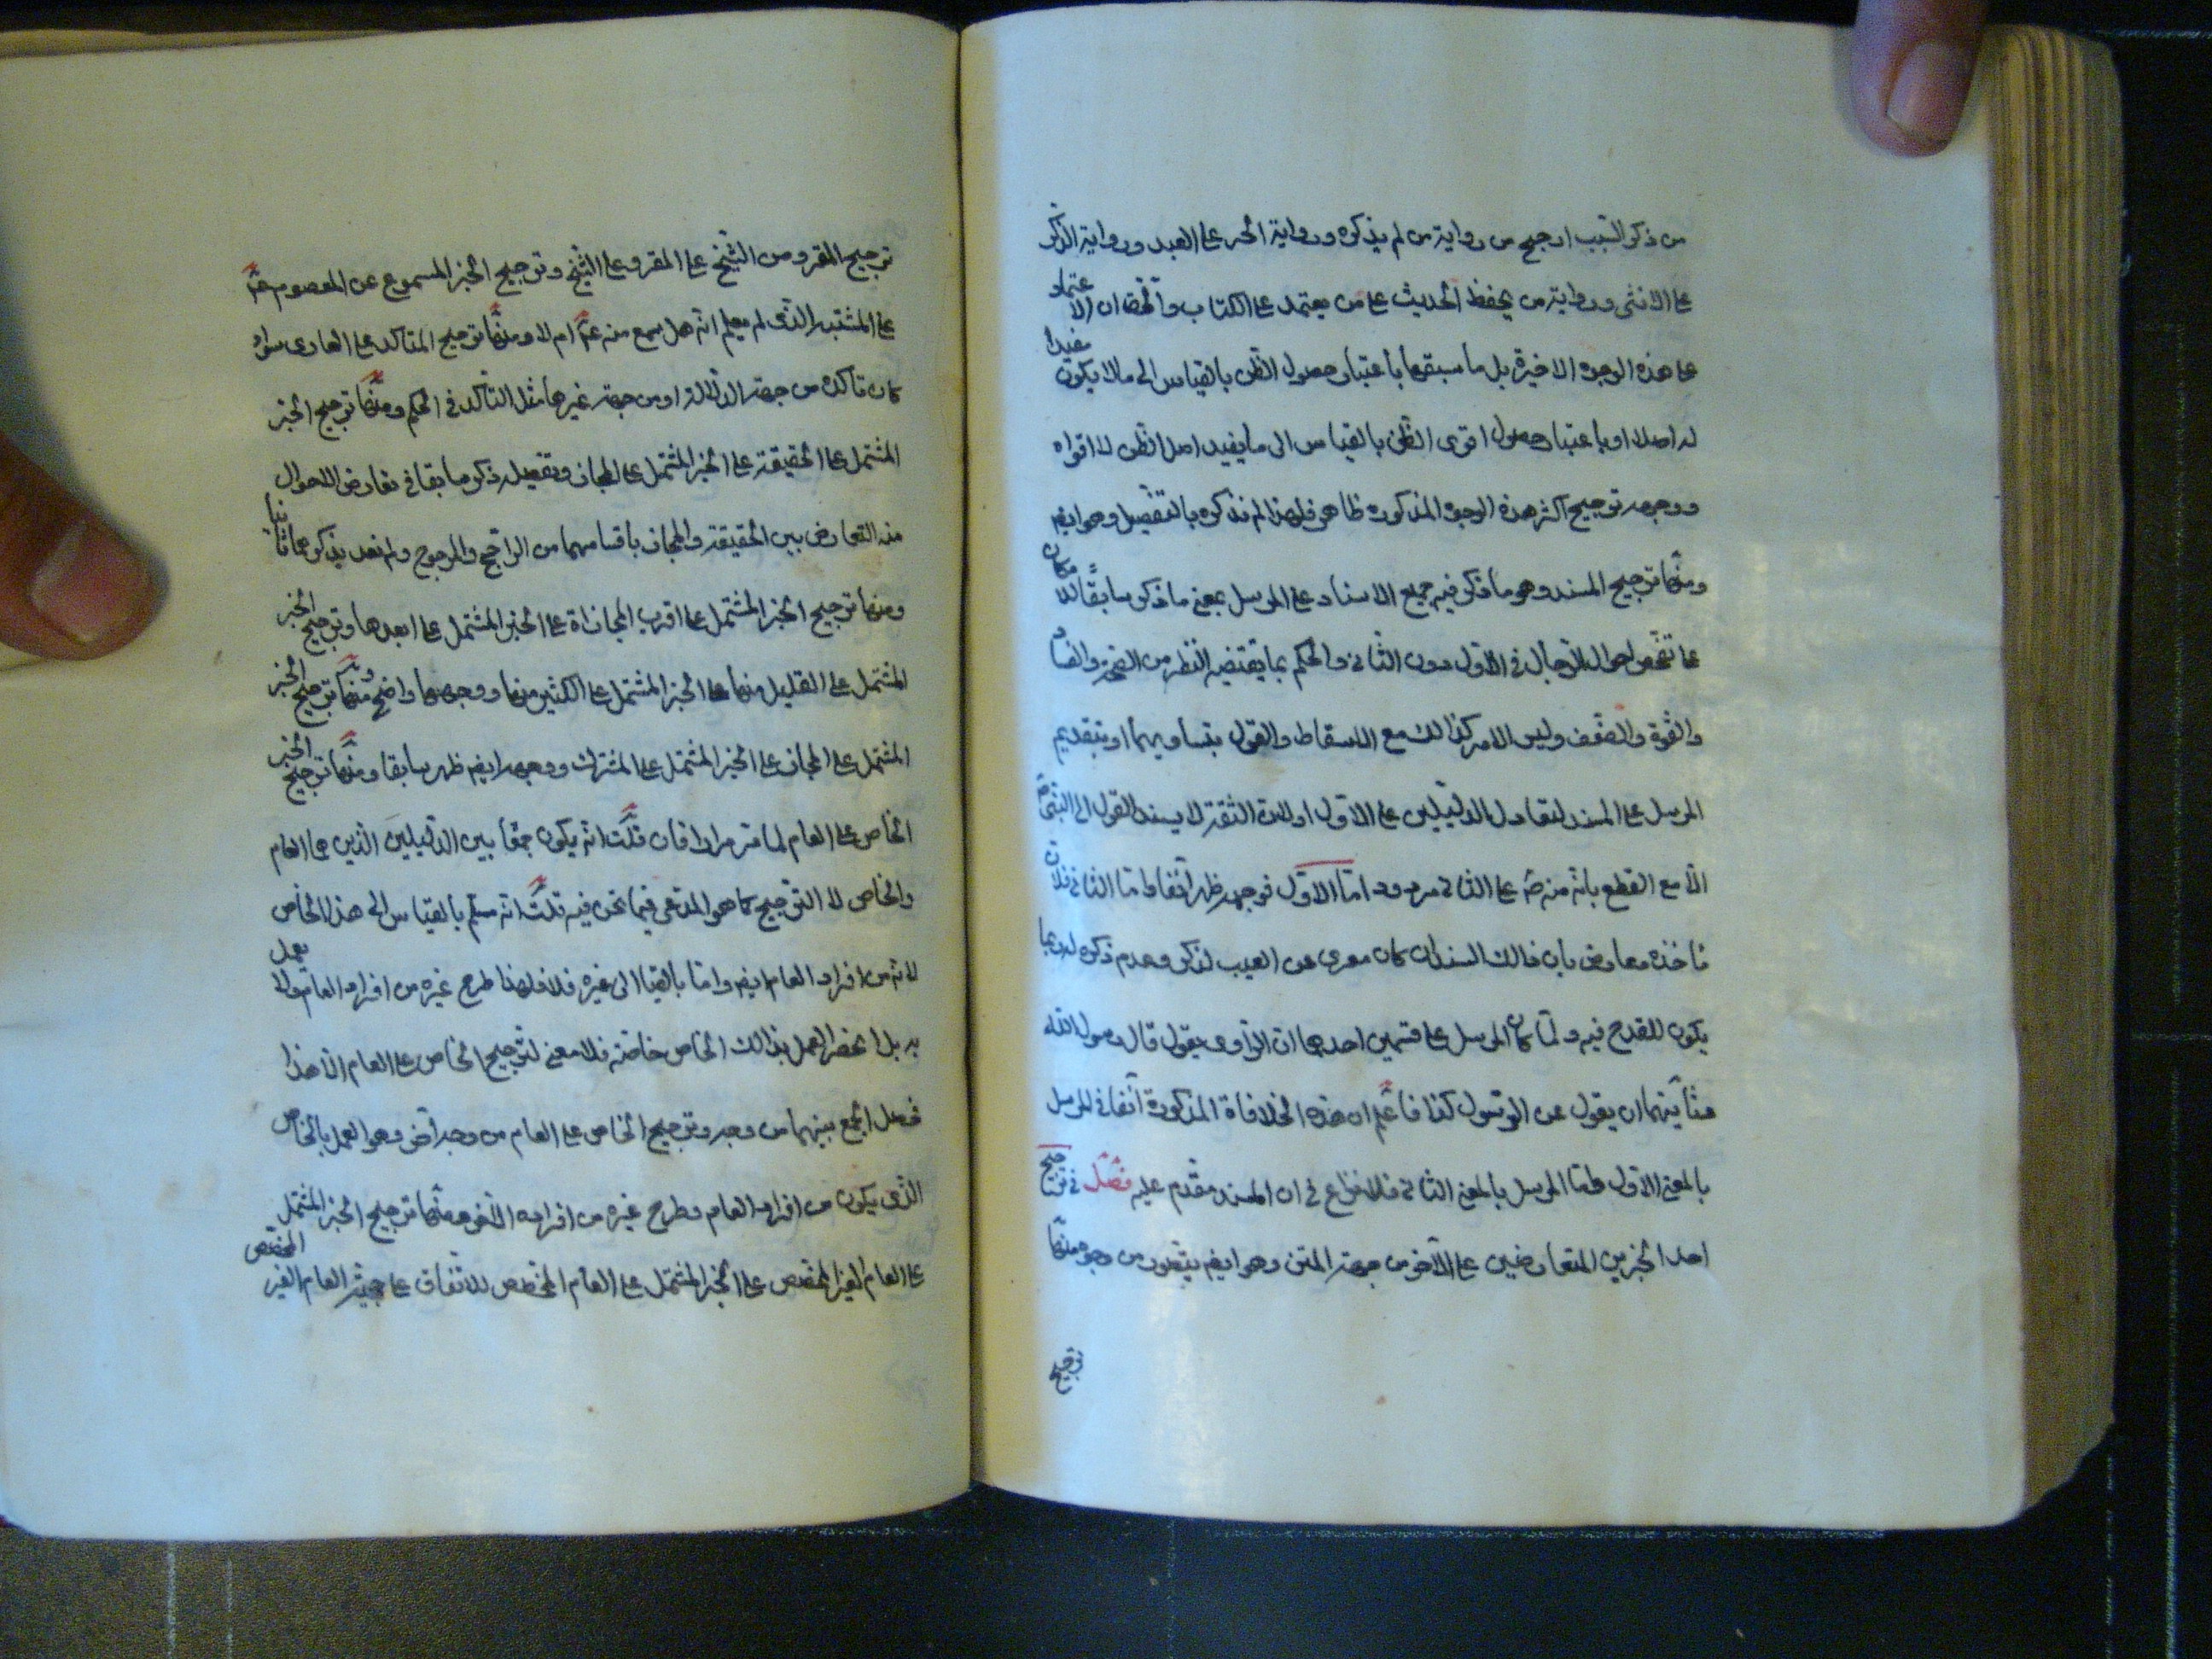 من ذكر السبب ارجح من رواية من لم يذكره ورواية الحر على العبد ورواية الذكر
على الانثى ورواية من يحفظ الحديث على من يعتمد على الكتاب والحق ان الاعتماد
على هذه الوجوه الاخيرة بل ما سبقها باعتبار حصول الظن بالقياس الى ما لا يكون مفيدا
له اصلا او باعتبار حصول اقوى الظن بالقياس الى ما يفيد اصل الظن لا اقواه
ووجه ترجيح اكثر هذه الوجوه المذكورة ظاهر فلهذا لم نذكره بالتفصيل وهو ايضم
ومنها ترجيح المسند وهو ما ذكر فيه جميع الاسناد على المرسل بمعنى ما ذكر سابقا لامكان
تفحص احوال الرجال في الاول دون الثاني والحكم بما يقتضيه النظر من الصحة والفساد
والقوة والضعف وليس الامر كذالك مع الاسقاط والقول بتساويهما او بتقديم
المرسل على المسند لتعادل الدليلين على الاول او لان الثقة لا يسند القول الى النبي ص
الا مع القطع بانه منه ص على الثاني مردود اما الاول فوجهه ظهر آنفا واما الثاني فلان
ماخذه معارض بان ذالك السند ان كان معرى عن العيب لذكر وعدم ذكره له ربما
يكون للقدح فيه ولما كان المرسل على قسمين احدهما ان الراوي يقول قال رسول الله
وثانيهما ان يقول عن الرسول كذا فاعلم ان هذه الخلافاة المذكورة آنفا في المرسل
بالمعنى الاول واما المرسل بالمعنى الثاني فلا نزاع في ان المسند مقدم عليه فصل في ترجيح
احد الخبرين المتعارضين على الآخر من جهة المتن وهو ايضم يتصور من وجوه منها
ترجيح
ترجيح المقرو من الشيخ على المقرو على الشيخ وترجيح الخبر المسموع عن المعصوم ع
على المشتبه الذي لم يعلم انه هل سمع منه ع ام لا ومنها ترجيح المتاكد على العارى سواء
كان تاكده من جهة الدلالة او من جهة غيرها مثل التاكد في الحكم ومنها ترجيح الخبر
المشتمل على الحقيقة على الخبر المشتمل على المجاز وتفصيله ذكر سابقا في تعارض الاحوال
منه التعارض بين الحقيقة والمجاز باقسامهما من الراجح والمرجوح ولم نعد بذكرهما ثانيا
ومنها ترجيح الخبر المشتمل على اقرب المجازاة على الخبر المشتمل على ابعدها وترجيح الخبر
المشتمل على القليل منها على الخبر المشتمل على الكثير منها ووجهها واضح ومنها ترجيح الخبر
المشتمل على المجاز على الخبر المشتمل على المشترك ووجهه ايضم ظهر سابقا ومنها ترجيح الخبر
الخاص على العام لما مر مرارا فان قلت انه يكون جمعا بين الدليلين الذين هما العام
والخاص لا الترجيح كما هو المدعى فيما نحن فيه قلت انه مسلم بالقياس الى هذا الخاص
لانه من افراد العام ايضم واما بالقيا الى غيره فلا فلهذا طرح غيره من افراد العام ولا يعمل
به بل انحصر العمل بذالك الخاص خاصة فلا معنى لترجيح الخاص على العام الا هذا
فحصل الجمع بينهما من وجه وترجيح الخاص على العام من وجه آخر وهو العمل بالخاص
الذي يكون من افراد العام وطرح غيره من افراده الاخر ومنها ترجيح الخبر المشتمل
على العام الغير المخصص على الخبر المشتمل على العام المخصص للاتفاق على حجية العام الغير المخصص